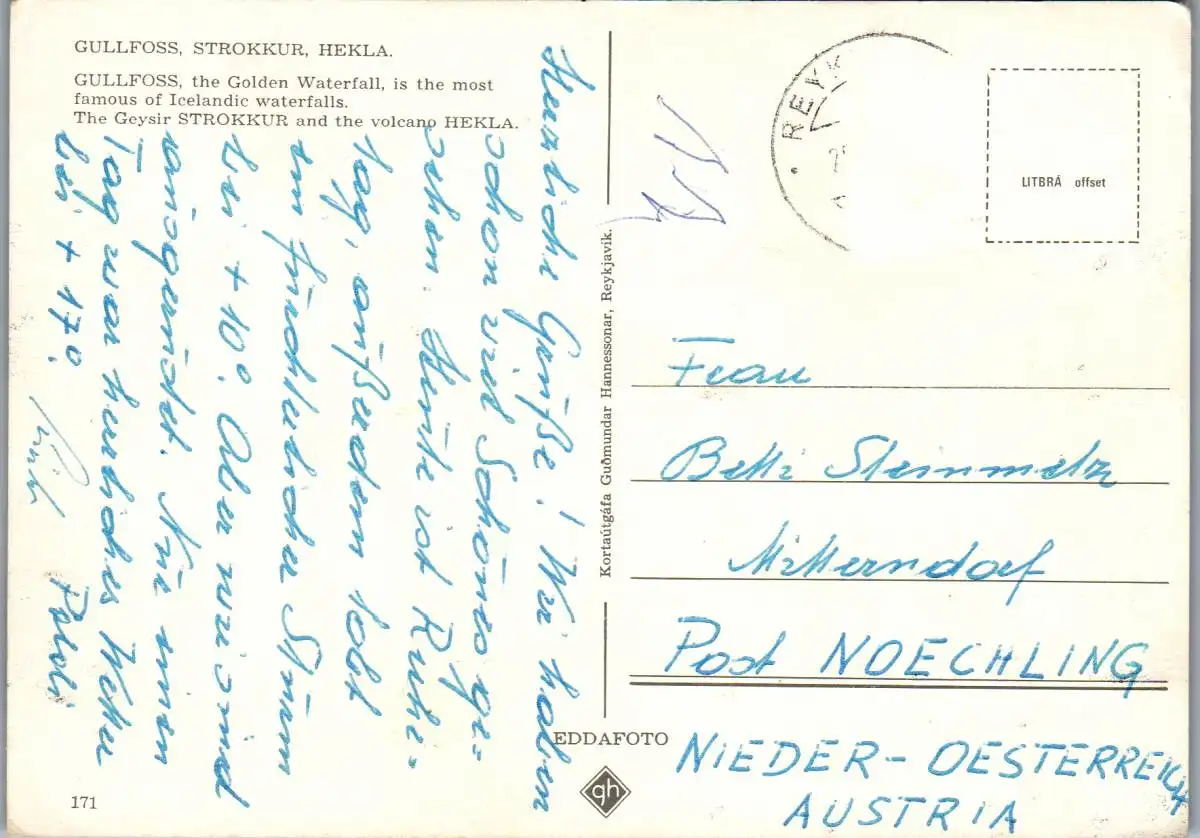 GULLFOSS, STROKKUR, HEKLA.
GULLFOSS, the Golden Waterfall, is the most
famous of Icelandic waterfalls.
The Geysir STROKKUR and the volcano HEKLA.
Herzliche Grüße! Wir haben
schon viel Schönes ge-
sehen. Heute ist Ruhe-
tag, außerdem tobt
ein fürchterlicher Sturm
bei + 10°. Aber wir sind
ausgerüstet. Nur einen
Tag war herrliches Wetter
bei + 17°.
Poldi
Kortaútgáfa Guðmundar Hannessonar, Reykjavik.
EDDAFOTO
gh
171
REYK
LITBRÁ offset
Frau
Betti Steinmetz
Mitterndorf
Post NOECHLING
NIEDER-OESTERREICH
AUSTRIA